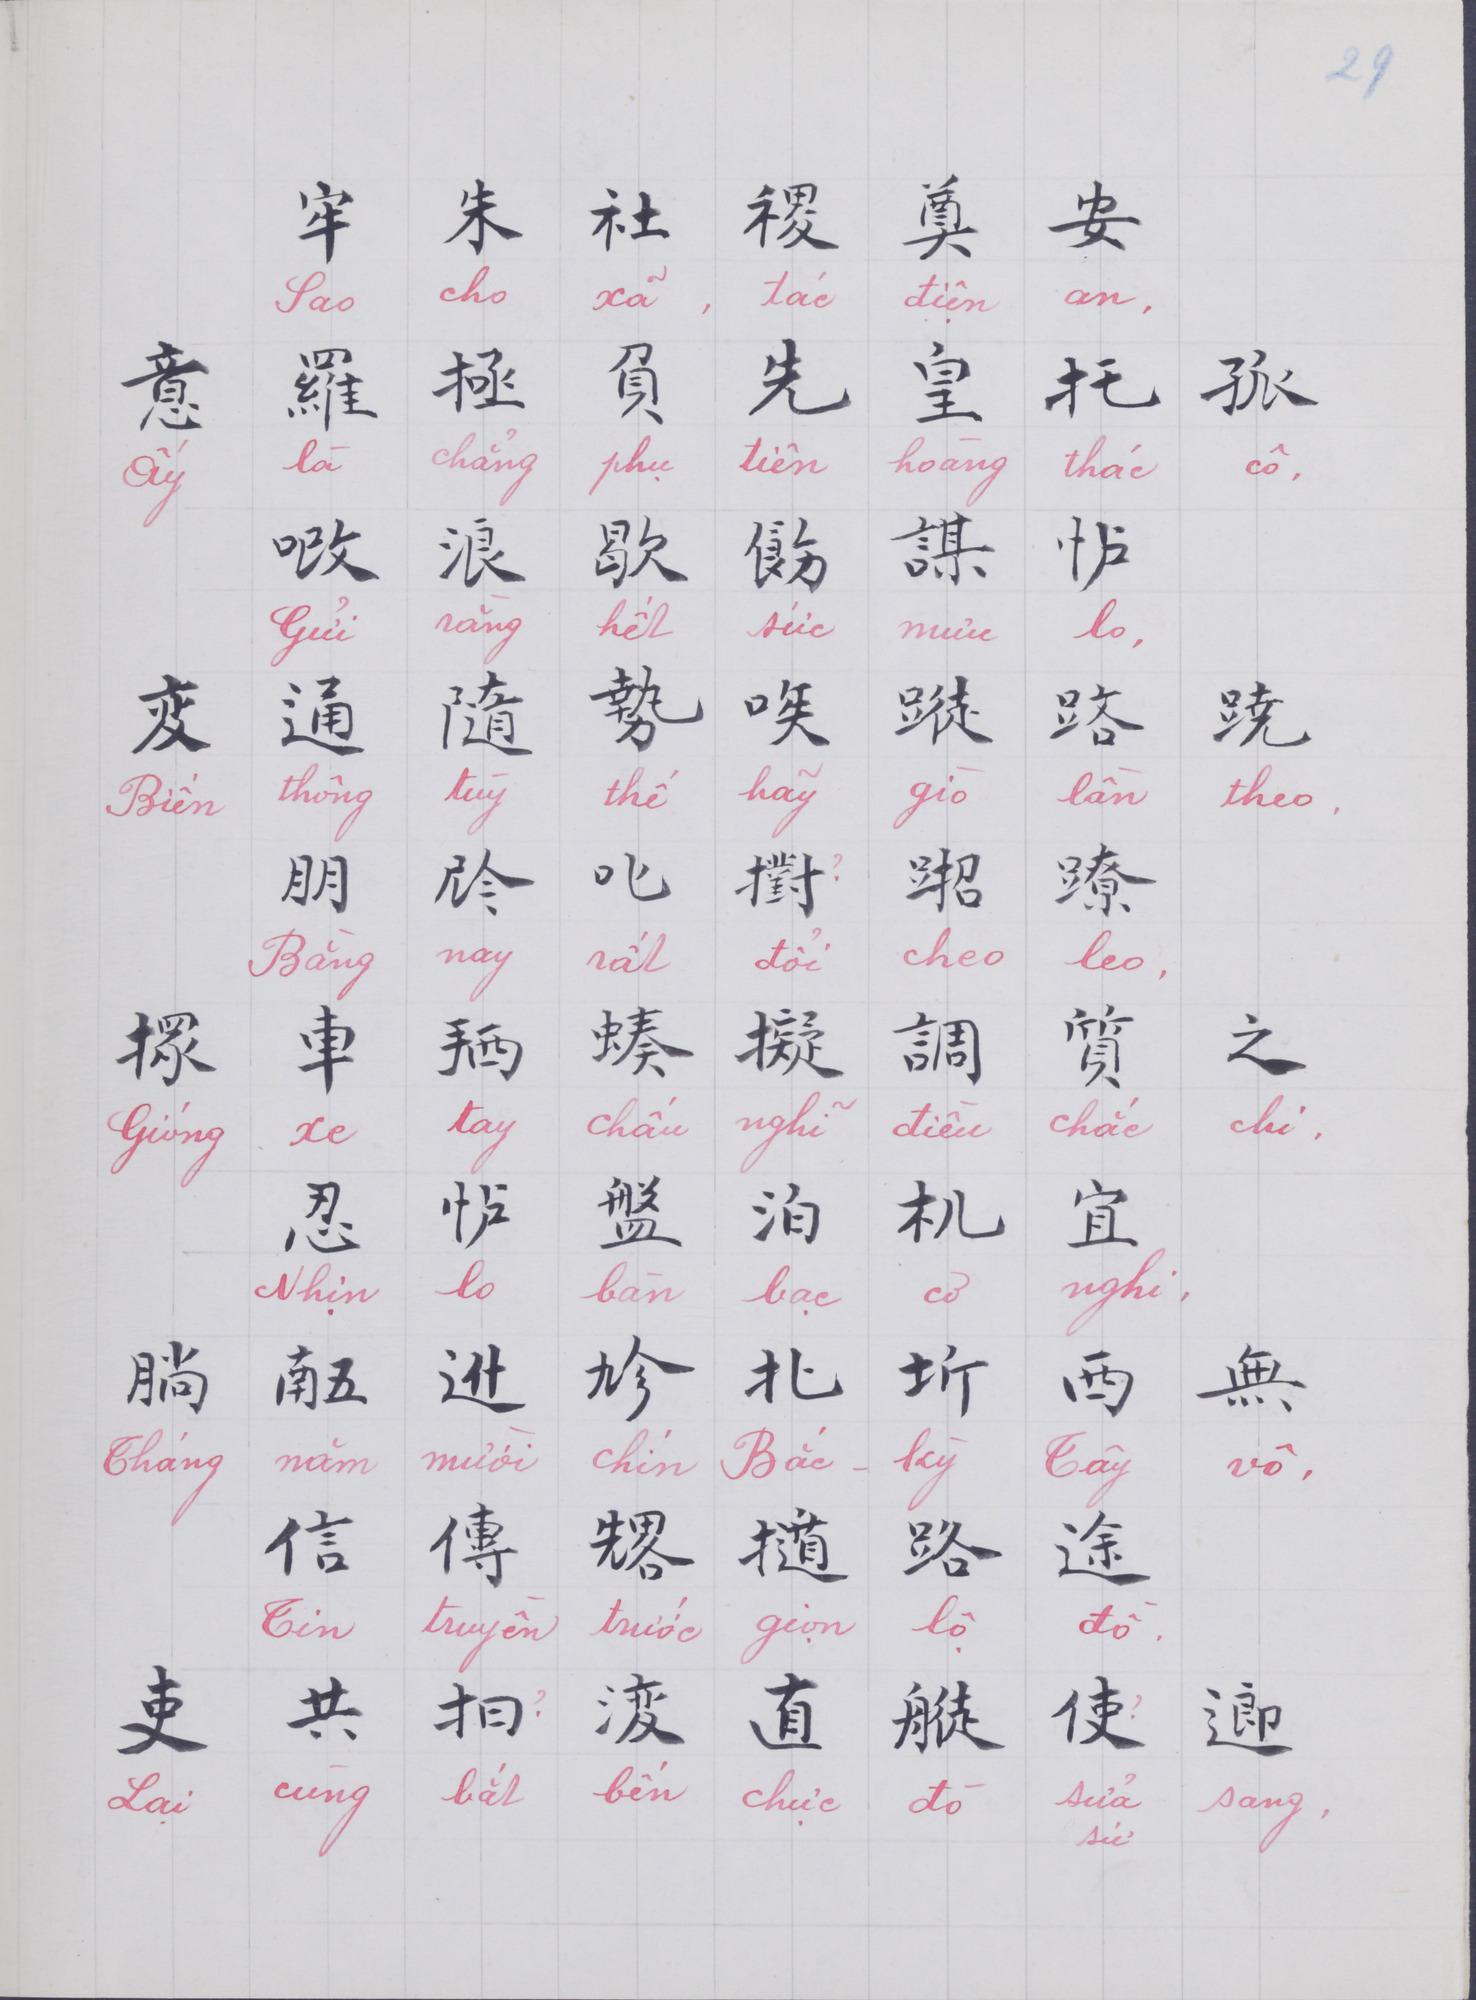 29
牢 朱 社 稷 奠 安
Sao cho xã, tắc điện an,
意 羅 拯 負 先 皇 托 孤
Ấy là chẳng phụ tiên hoàng thác cô,
𠳚 浪 歇 飭 謀 怗
Gửi rằng hết sức mưu lo,
变 通 隨 勢 唉 蹝 路 蹺
Biến thông tùy thế hãy giò lần theo,
朋 𫢩 𠮿 擆? 𨅹 蹽
Bằng nay rất đổi cheo leo,
𢶢 車 𢬣 蜯 擬 調 質 之
Gióng xe tay chấu nghĩ điều chắc chi,
忍 怗 盤 泊 机 宜
Nhịn lo bàn bạc cơ nghi,
𣎃 𠄼 𨑮 𠃩 北 圻 西 無
Tháng năm mười chín Bắc-kỳ Tây vô,
信 傳 𠓀 𢵋 路 途
Tin truyền trước giọn lộ đồ.
吏 共 抇? 𣷷 直 艃 使? 𨖅
Lại cùng bắt bến chực đò sửa sang,
sứ